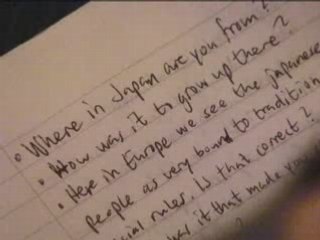 • Where in Japan are you from?
• How was it to grow up there?
• Here in Europe we see the Japanese
people as very bound to tradition
rules. Is that correct?
it that made you